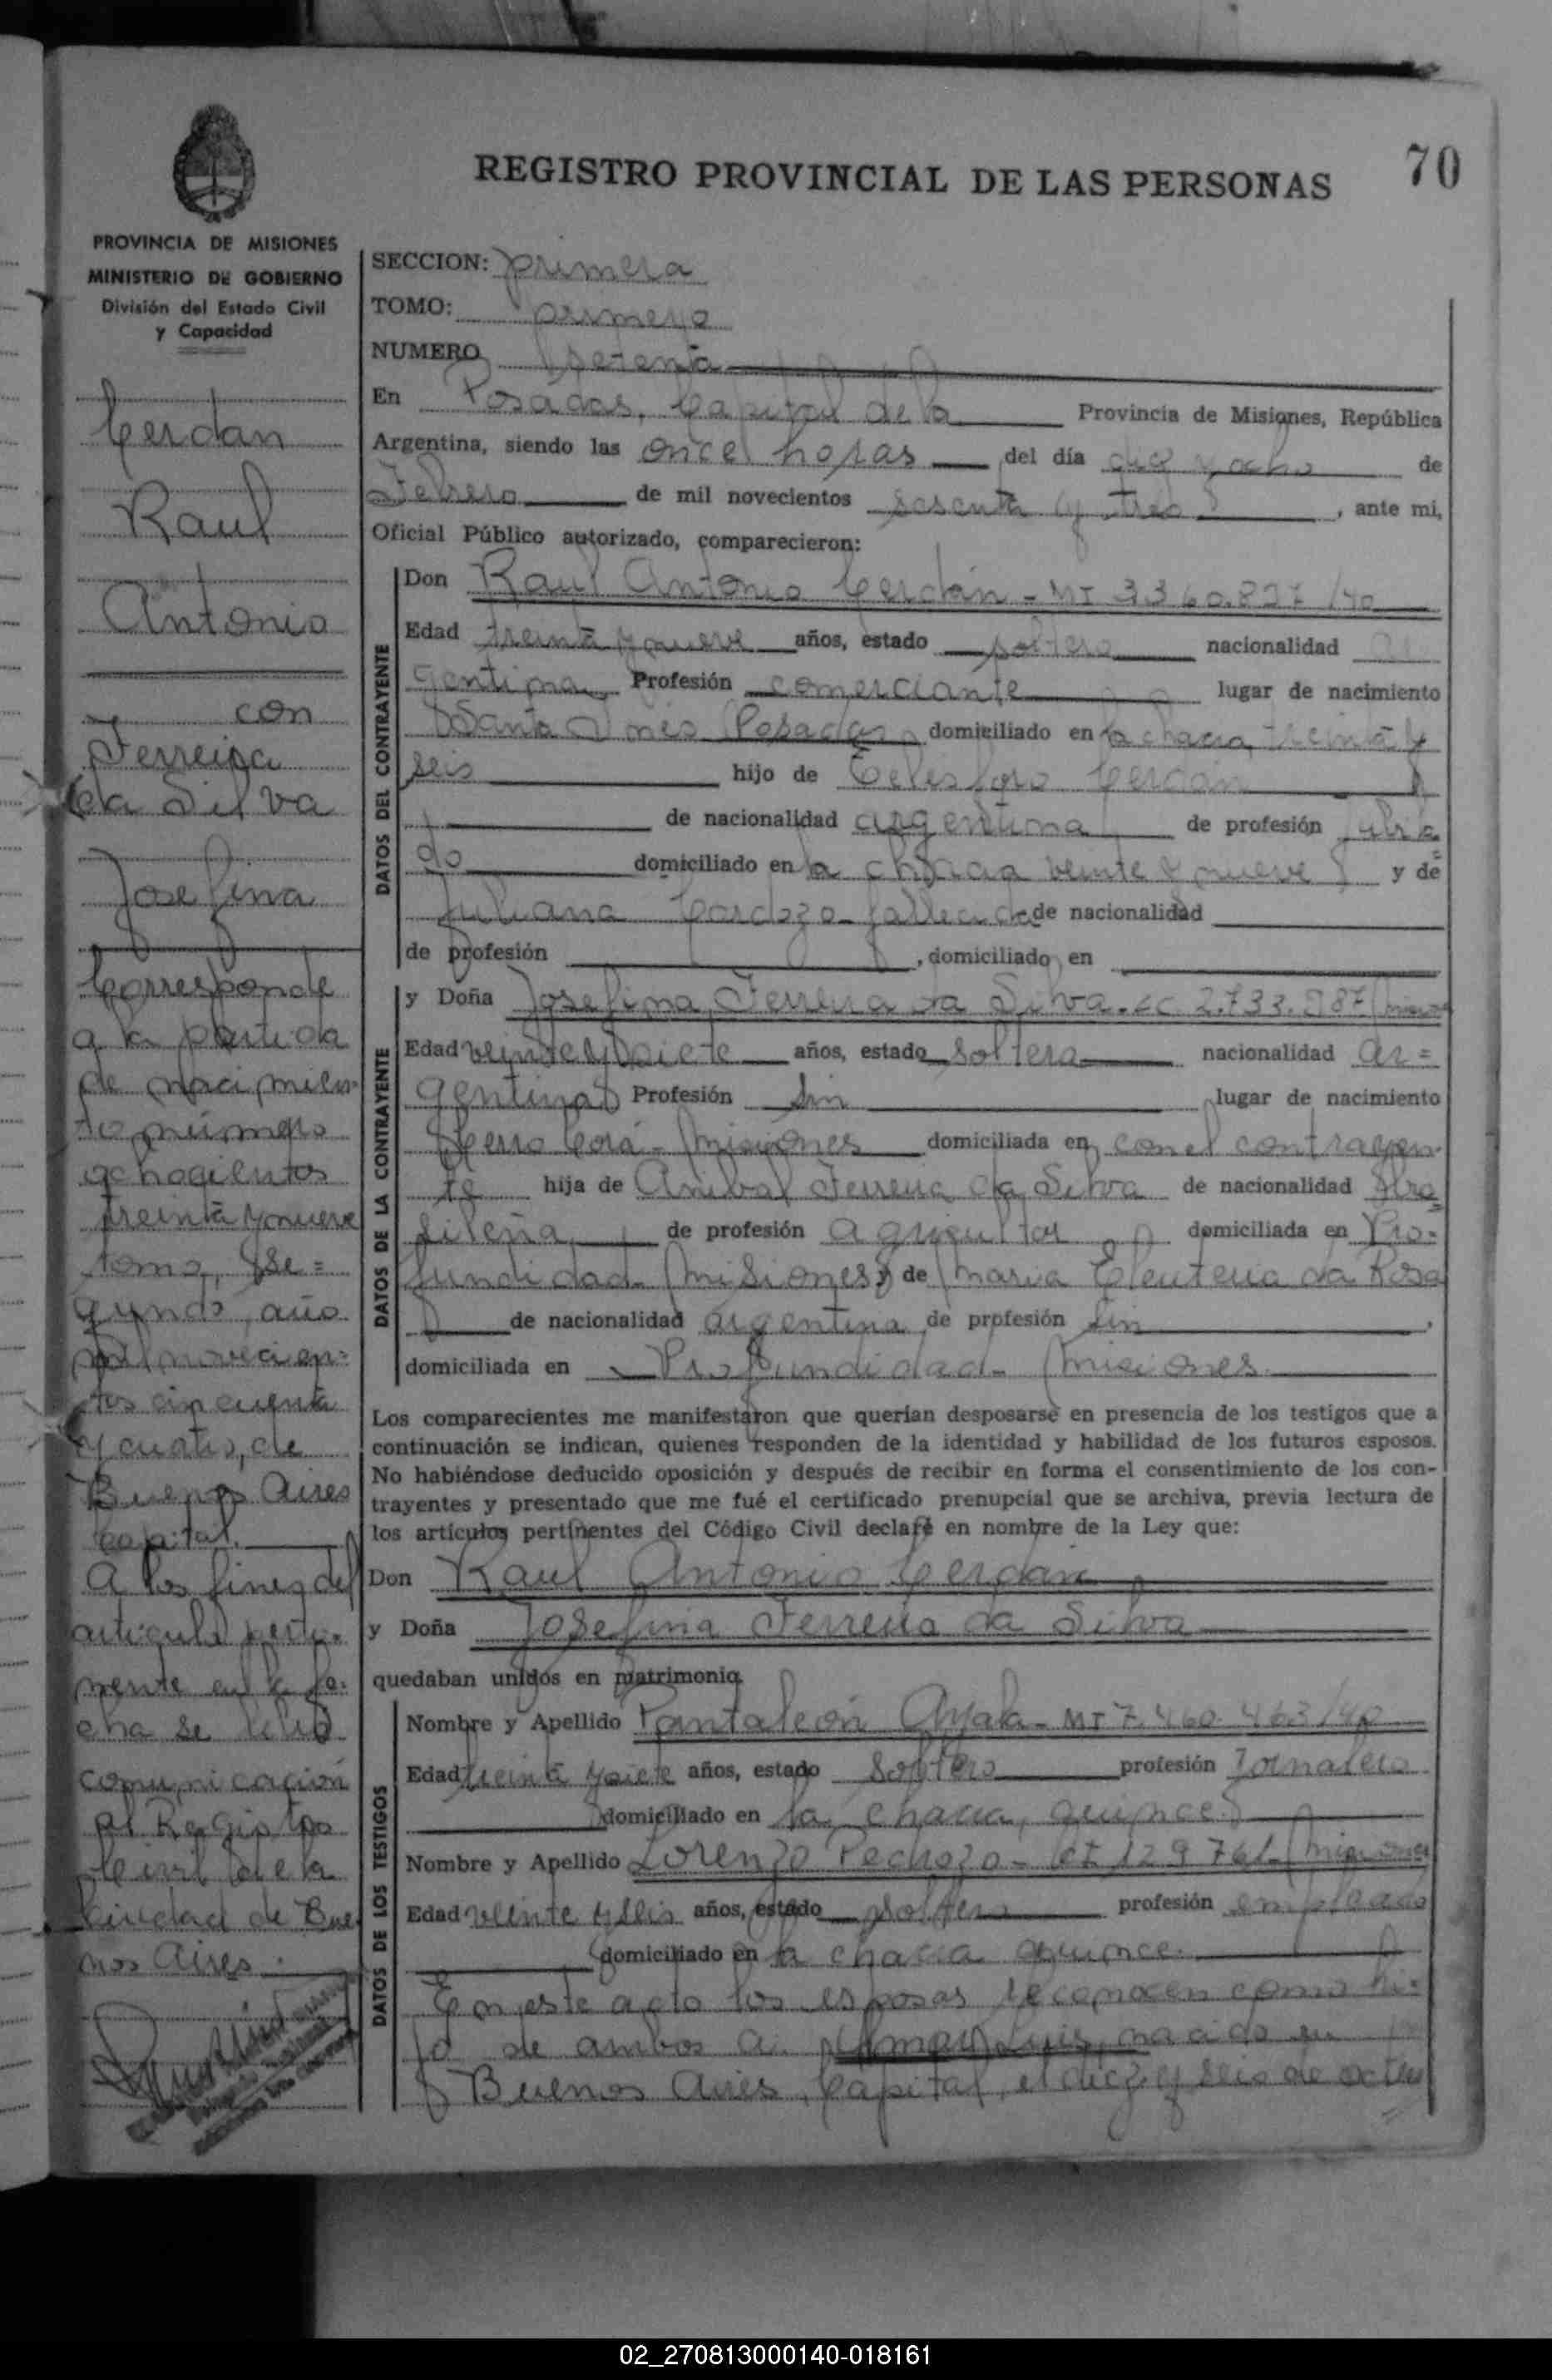 REGISTRO PROVINCIAL DE LAS PERSONAS
70
PROVINCIA DE MISIONES
MINISTERIO DE GOBIERNO
División del Estado Civil
y Capacidad
Cerdan
Raul
Antonio
con
Ferreira
da Silva
Josefina
Corresponde
a la partida
de nacimien-
to número
ochocientos
treinta y nueve
tomo, se=
gundo, año
mil novecien=
tos cincuenta
y cuatro, de
Buenos Aires
Capital.
A los fines del
articulo perti-
nente en la fe-
cha se libró
comunicación
al Registro
Civil de la
Ciudad de Bue
nos Aires.
SECCION: primera
TOMO: primero
NUMERO setenta
En Posadas, Capital de la Provincia de Misiones, República
Argentina, siendo las once horas del día diez y ocho de
Febrero de mil novecientos sesenta y tres, ante mi,
Oficial Público autorizado, comparecieron:
DATOS DEL CONTRAYENTE
Don Raul Antonio Cerdán - MI 3360.827/40
Edad treinta y nueve años, estado soltero nacionalidad ar
gentina Profesión comerciante lugar de nacimiento
Santa Inés Posadas domiciliado en la chacra treinta y
seis hijo de Telesforo Cerdán
de nacionalidad argentina de profesión jubila
do domiciliado en la chacra veinte y nueve y de
Juliana Cardozo - fallecida de nacionalidad
de profesión , domiciliado en
DATOS DE LA CONTRAYENTE
y Doña Josefina Ferreira da Silva. LC 2.733.987
Edad veinte y siete años, estado soltera nacionalidad ar=
gentina Profesión sin lugar de nacimiento
Cerro Corá - Misiones domiciliada en con el contrayen-
te hija de Anibal Ferreira da Silva de nacionalidad bra=
sileña de profesión agricultor domiciliada en Pro=
fundidad - Misiones y de Maria Eleuteria da Rosa
de nacionalidad argentina de profesión sin ,
domiciliada en Profundidad - Misiones.
Los comparecientes me manifestaron que querían desposarse en presencia de los testigos que a
continuación se indican, quienes responden de la identidad y habilidad de los futuros esposos.
No habiéndose deducido oposición y después de recibir en forma el consentimiento de los con-
trayentes y presentado que me fué el certificado prenupcial que se archiva, previa lectura de
los artículos pertinentes del Código Civil declaré en nombre de la Ley que:
Don Raul Antonio Cerdán
y Doña Josefina Ferreira da Silva
quedaban unidos en matrimonio.
DATOS DE LOS TESTIGOS
Nombre y Apellido Pantaleón Ayala - MI 7.460.463/40
Edad treinta y siete años, estado soltero profesión Jornalero
domiciliado en la chacra, quince.
Nombre y Apellido Lorenzo Pedrozo - CI 129761 - Misiones
Edad veinte y seis años, estado soltero profesión empleado
domiciliado en la chacra quince.
En este acto los esposos reconocen como hi-
jo de ambos a: Omar Luis, nacido en
Buenos Aires, Capital, el diez y seis de octu
02_270813000140-018161